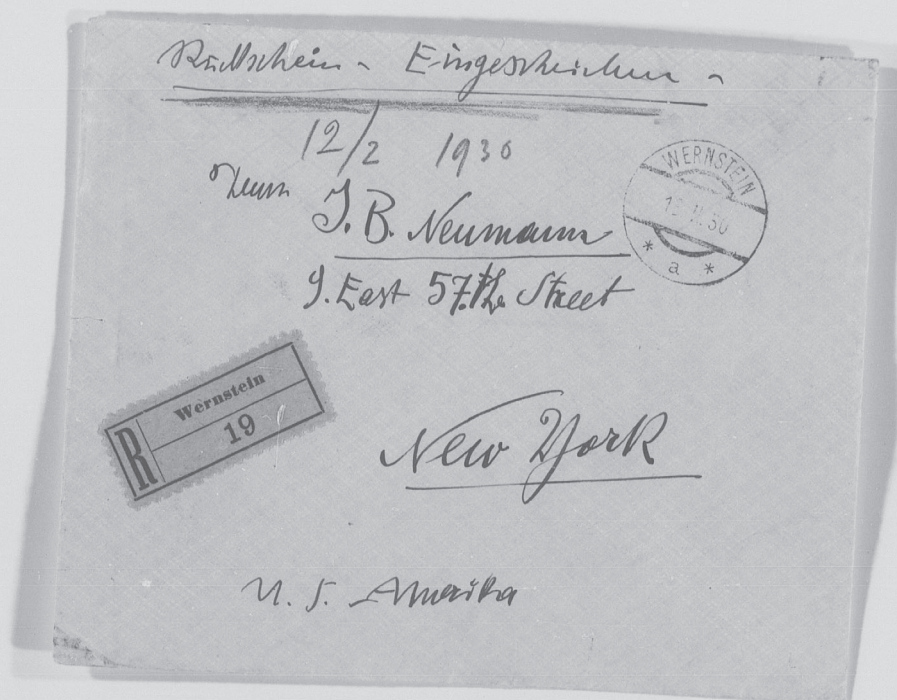 Rückschein - Eingeschrieben -
12/2 1930
Herrn J. B. Neumann
9. East 57.the Street
WERNSTEIN
* a *
R Wernstein
19
New York
U. S. Amerika